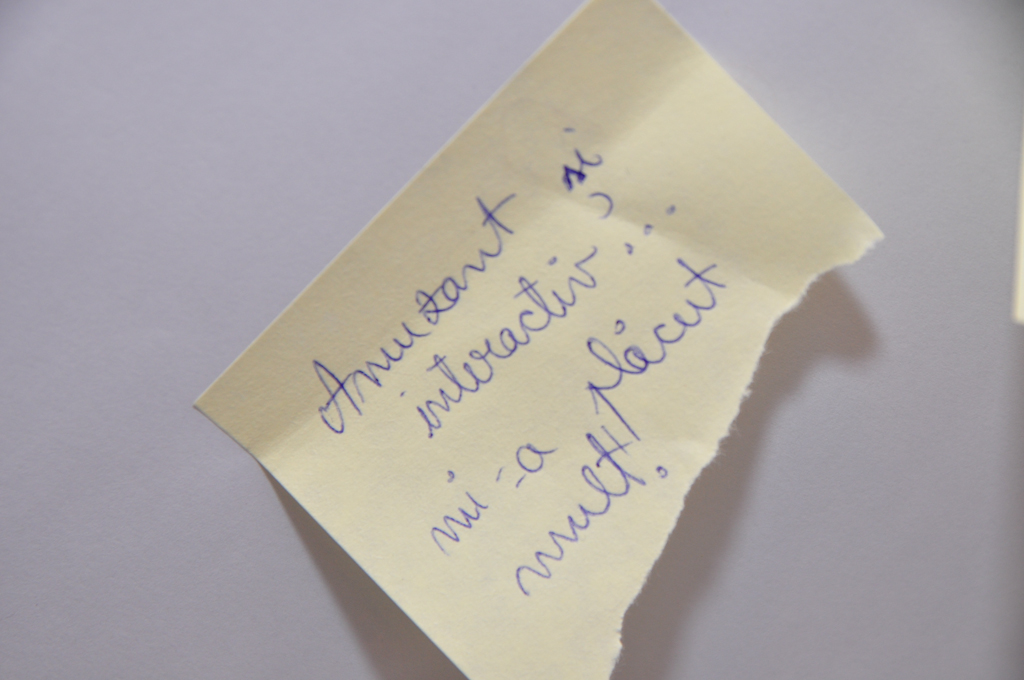 Amuzant și
interactiv...
mi-a plăcut
mult!